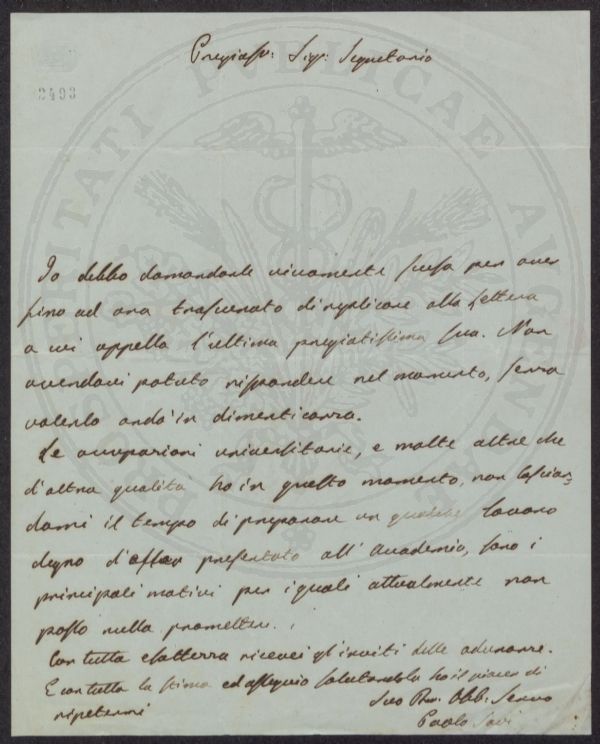 Pregiass: Sigr: Segretario
2493
PROSPERITATI PVBLICAE AVGENDAE
Io debbo domandarle vivamente scusa per aver
fino ad ora trascurato di replicare alla Lettera
a cui appella l'ultima pregiatissima sua. Non
avendovi potuto rispondere nel momento, senza
volerlo andò in dimenticanza.
Le occupazioni universitarie, e molte altre che
d'altra qualità ho in questo momento, non lascian-
domi il tempo di preparare un qualche lavoro
degno d'esser presentato all'Accademia, sono i
principali motivi per i quali attualmente non
posso nulla promettere.
Con tutta esattezza ricevei gl'inviti delle adunanze.
E con tutta la stima ed ossequio salutandola ho il piacer di
ripetermi
Suo Dev. Obb. Servo
Paolo Savi